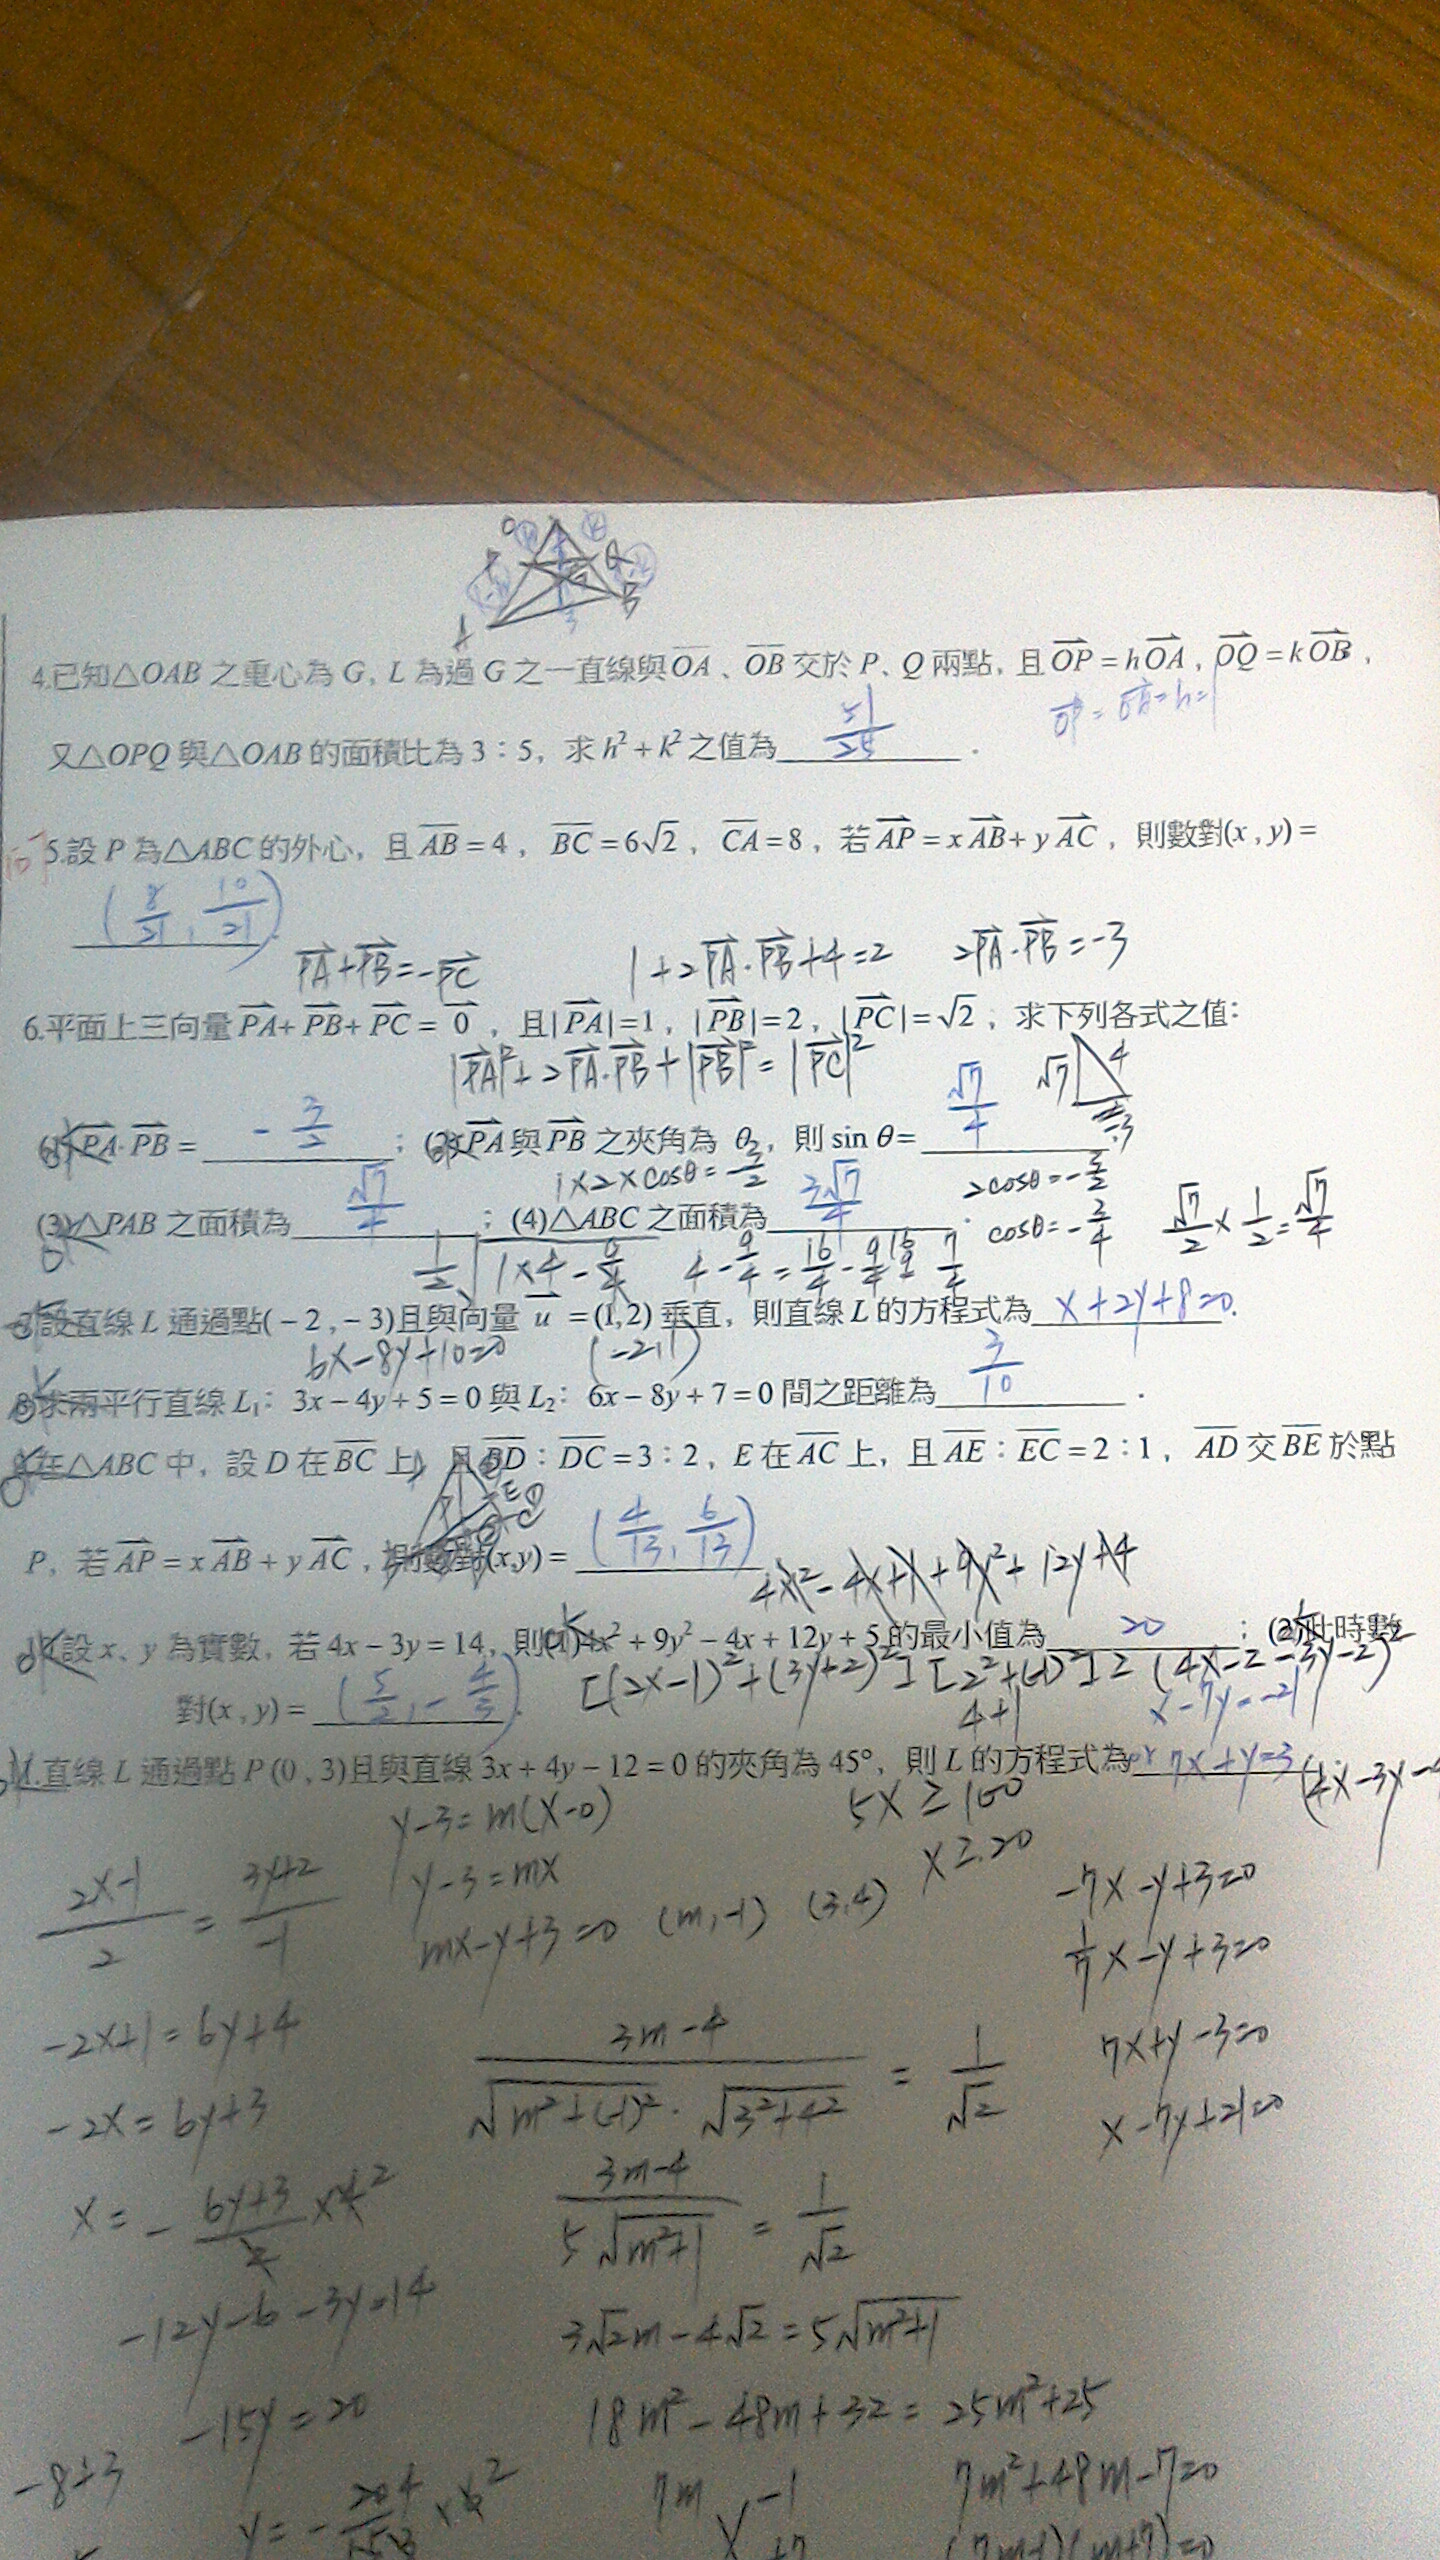 O
P Q
A B
3
4.已知△OAB 之重心為 G, L 為過 G 之一直線與OA、OB 交於 P、Q 兩點, 且 OP = hOA, OQ = kOB,
又△OPQ 與△OAB 的面積比為 3:5, 求 h² + k² 之值為 51/25 .
5.設 P 為△ABC 的外心, 且 AB = 4, BC = 6√2, CA = 8, 若 AP = x AB + y AC, 則數對(x, y) =
(8/21, 10/21).
PA + PB = -PC 1 + 2PA·PB + 4 = 2 2PA·PB = -3
6.平面上三向量 PA + PB + PC = 0, 且|PA| = 1, |PB| = 2, |PC| = √2, 求下列各式之值:
|PA|² + 2PA·PB + |PB|² = |PC|² √7 4
(1) PA·PB = -3/2 ; (2)設 PA 與 PB 之夾角為 θ, 則 sin θ = √7/4
1×2×cosθ = -3/2 2cosθ = -3/2
(3)△PAB 之面積為 √7/4 ; (4)△ABC 之面積為 3√7/4 . cosθ = -3/4 √7/2 × 1/2 = √7/4
7.設直線 L 通過點(-2, -3)且與向量 u = (1, 2) 垂直, 則直線 L 的方程式為 x + 2y + 8 = 0.
6x - 8y + 10 = 0 (-2, 1)
8.求兩平行直線 L₁: 3x - 4y + 5 = 0 與 L₂: 6x - 8y + 7 = 0 間之距離為 3/10 .
9.在△ABC 中, 設 D 在 BC 上, 且 BD : DC = 3:2, E 在 AC 上, 且 AE : EC = 2:1, AD 交 BE 於點
P, 若 AP = x AB + y AC, 則數對(x,y) = (4/13, 6/13)
4x² - 4x + 1 + 9y² + 12y + 4
10.設 x、y 為實數, 若 4x - 3y = 14, 則(1)4x² + 9y² - 4x + 12y + 5 的最小值為 20 ; (2)此時數
對(x, y) = (5/2, -4/3).
[(2x-1)² + (3y+2)²][2² + (-1)²] ≥ (4x-2-3y-2)²
4+1 x - 7y = -21
11.直線 L 通過點 P (0, 3)且與直線 3x + 4y - 12 = 0 的夾角為 45°, 則 L 的方程式為 or 7x + y = 3
(4x - 3y - 4
y - 3 = m(x - 0) 5x ≥ 100
x ≥ 20
(2x-1)/2 = (3y+2)/-1
y - 3 = mx
mx - y + 3 = 0 (m, -1) (3, 4)
-7x - y + 3 = 0
1/7 x - y + 3 = 0
-2x + 1 = 6y + 4
(3m-4)/(√(m²+(-1)²)·√(3²+4²)) = 1/√2
7x + y - 3 = 0
-2x = 6y + 3
x - 7y + 21 = 0
x = -(6y+3)/2 × 4²
(3m-4)/(5√(m²+1)) = 1/√2
-12y - 6 - 3y = 14
3√2m - 4√2 = 5√(m²+1)
-15y = 20
18m² - 48m + 32 = 25m² + 25
-8+3
7m -1 7m² + 48m - 7 = 0
(7m-1)(m+7) = 0